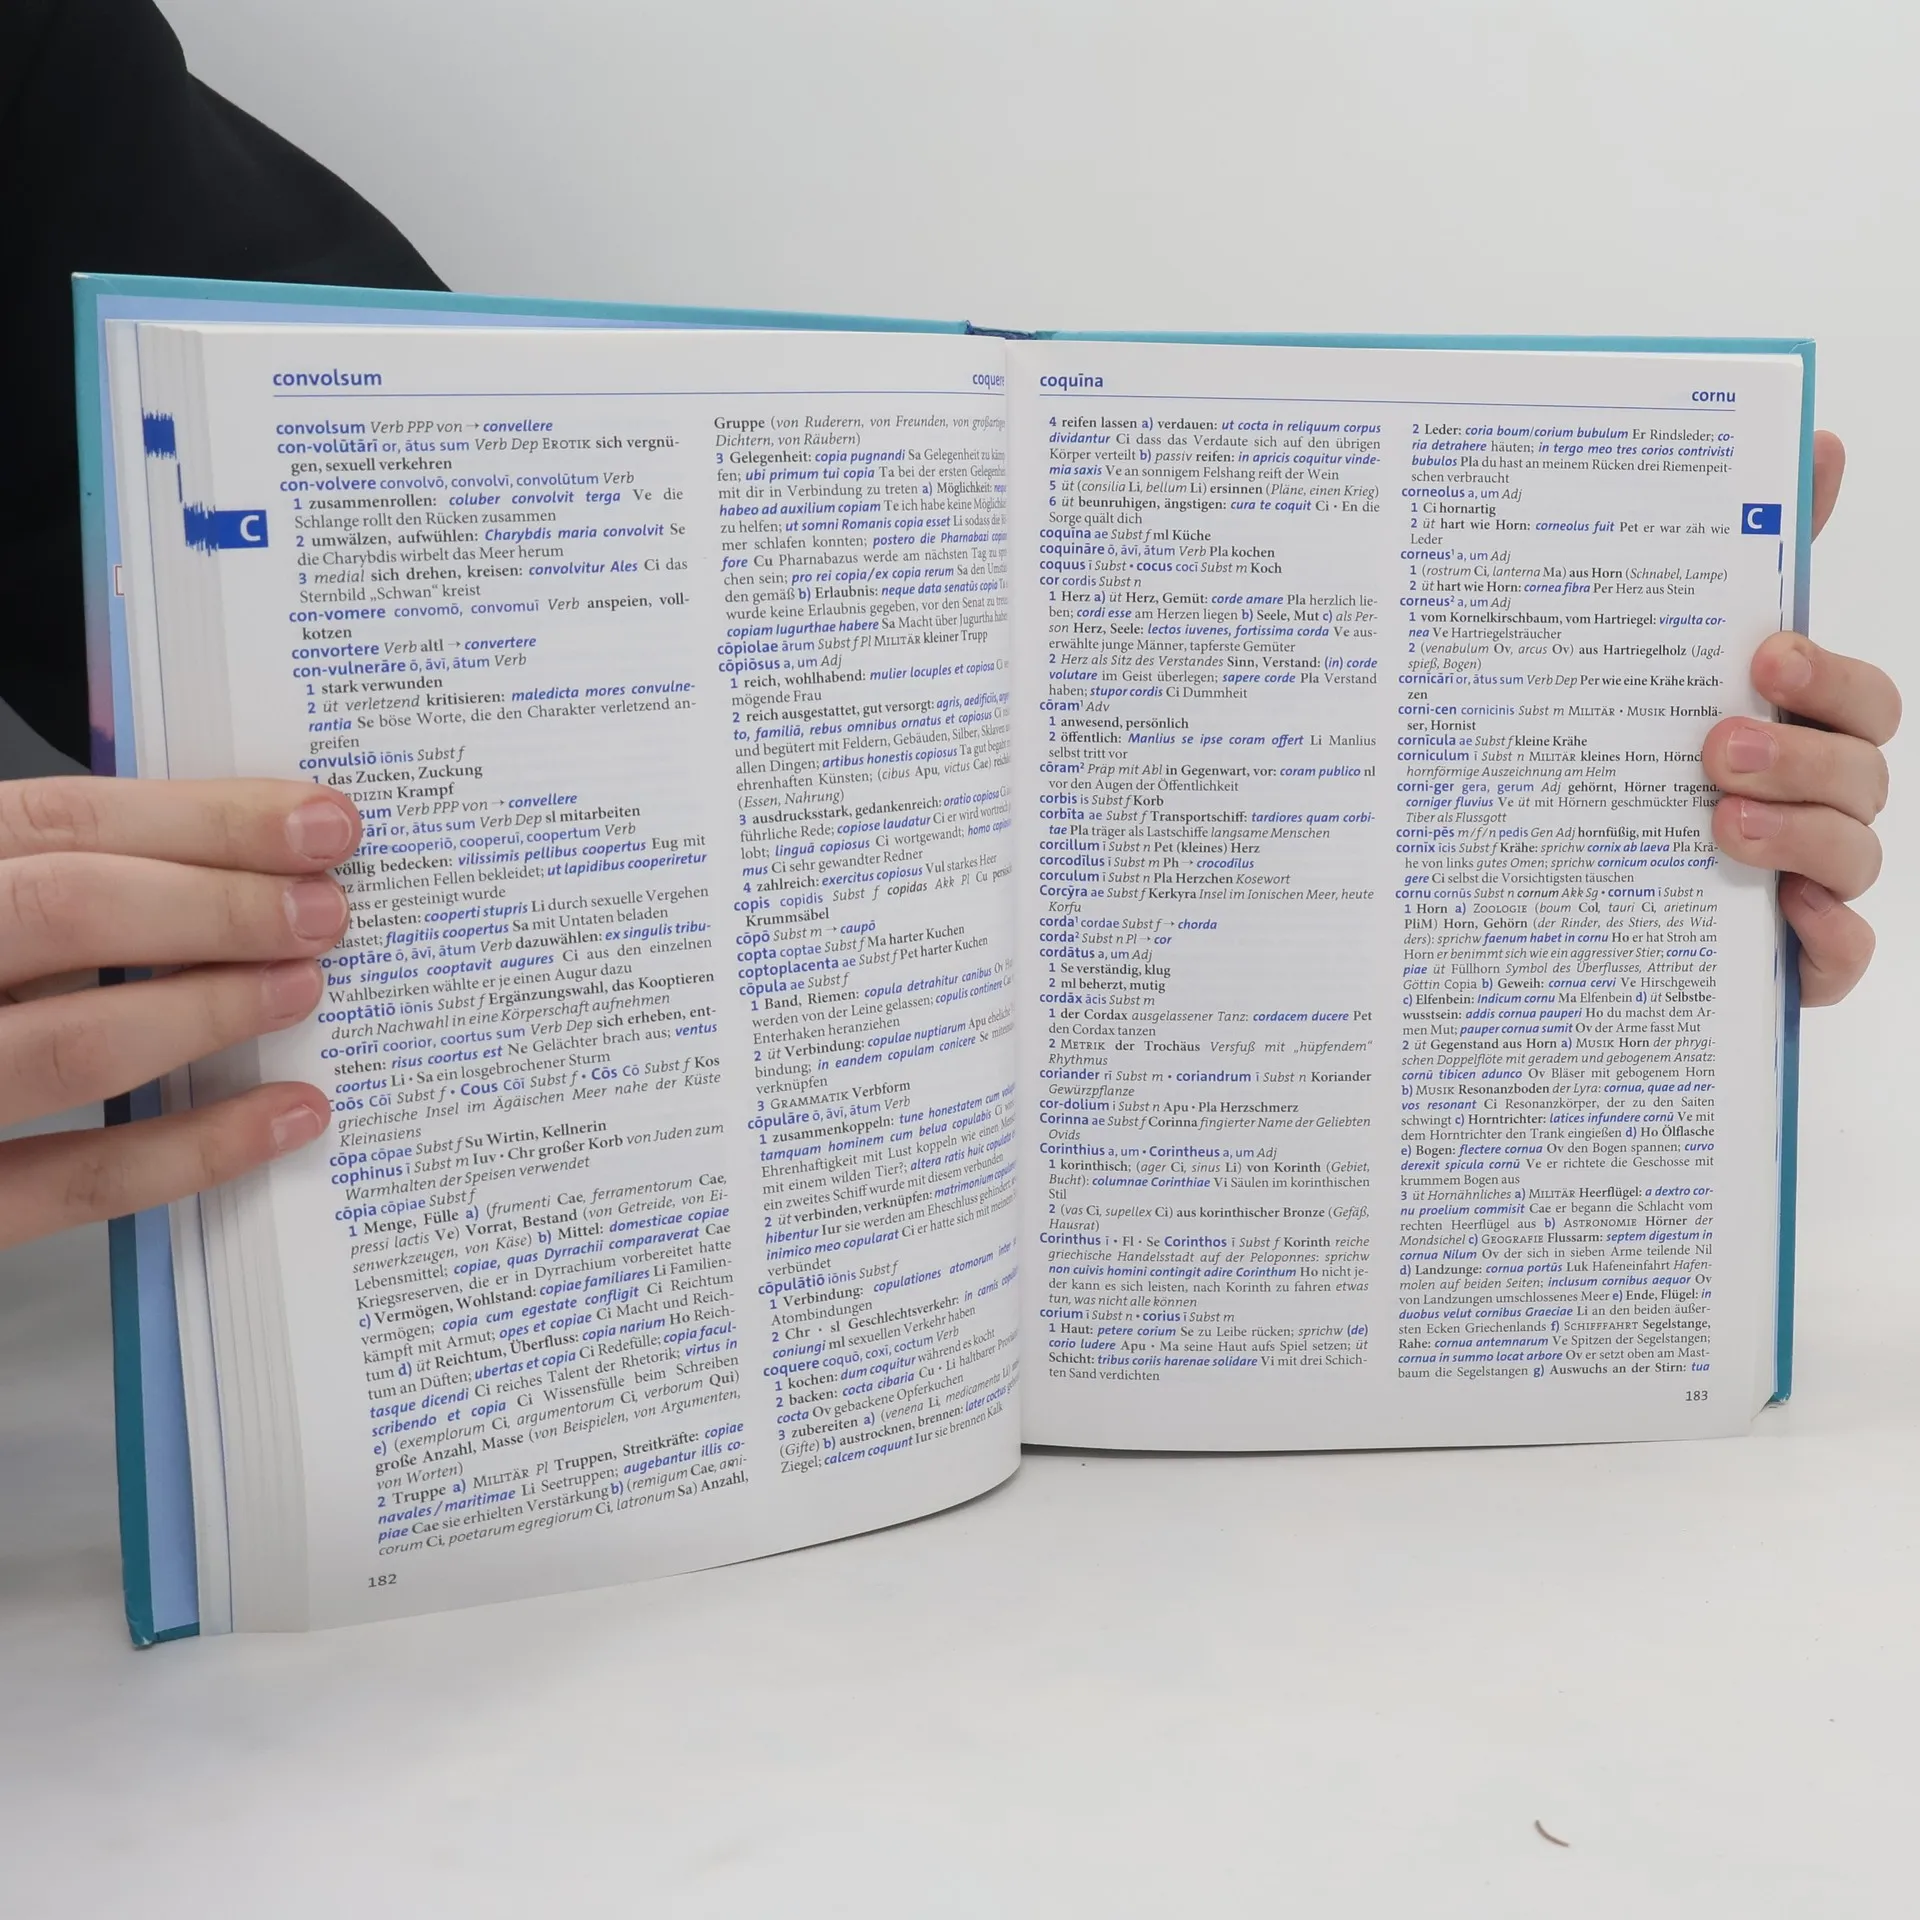 convolsum
coquere
convolsum Verb PPP von → convellere
con-volūtārī or, ātus sum Verb Dep EROTIK sich vergnü-
gen, sexuell verkehren
con-volvere convolvō, convolvī, convolūtum Verb
1 zusammenrollen: coluber convolvit terga Ve die
Schlange rollt den Rücken zusammen
2 umwälzen, aufwühlen: Charybdis maria convolvit Se
die Charybdis wirbelt das Meer herum
3 medial sich drehen, kreisen: convolvitur Ales Ci das
Sternbild „Schwan" kreist
con-vomere convomō, convomuī Verb anspeien, voll-
kotzen
convortere Verb altl → convertere
con-vulnerāre ō, āvī, ātum Verb
1 stark verwunden
2 üt verletzend kritisieren: maledicta mores convulne-
rantia Se böse Worte, die den Charakter verletzend an-
greifen
convulsiō iōnis Subst f
1 das Zucken, Zuckung
EDIZIN Krampf
sum Verb PPP von → convellere
rārī or, ātus sum Verb Dep sl mitarbeiten
erīre cooperiō, cooperuī, coopertum Verb
völlig bedecken: vilissimis pellibus coopertus Eug mit
nz ärmlichen Fellen bekleidet; ut lapidibus cooperiretur
ass er gesteinigt wurde
t belasten: cooperti stupris Li durch sexuelle Vergehen
elastet; flagitiis coopertus Sa mit Untaten beladen
co-optāre ō, āvī, ātum Verb dazuwählen: ex singulis tribu-
bus singulos cooptavit augures Ci aus den einzelnen
Wahlbezirken wählte er je einen Augur dazu
cooptātiō iōnis Subst f Ergänzungswahl, das Kooptieren
durch Nachwahl in eine Körperschaft aufnehmen
co-orīrī coorior, coortus sum Verb Dep sich erheben, ent-
stehen: risus coortus est Ne Gelächter brach aus; ventus
coortus Li • Sa ein losgebrochener Sturm
Coōs Coī Subst f • Cous Coī Subst f • Cōs Cō Subst f Kos
griechische Insel im Ägäischen Meer nahe der Küste
Kleinasiens
cōpa cōpae Subst f Su Wirtin, Kellnerin
cophinus ī Subst m Iuv • Chr großer Korb von Juden zum
Warmhalten der Speisen verwendet
cōpia cōpiae Subst f
1 Menge, Fülle a) (frumenti Cae, ferramentorum Cae,
pressi lactis Ve) Vorrat, Bestand (von Getreide, von Ei-
senwerkzeugen, von Käse) b) Mittel: domesticae copiae
Lebensmittel; copiae, quas Dyrrachii comparaverat Cae
Kriegsreserven, die er in Dyrrachium vorbereitet hatte
c) Vermögen, Wohlstand: copiae familiares Li Familien-
vermögen; copia cum egestate confligit Ci Reichtum
kämpft mit Armut; opes et copiae Ci Macht und Reich-
tum d) üt Reichtum, Überfluss: copia narium Ho Reich-
tum an Düften; ubertas et copia Ci Redefülle; copia facul-
tasque dicendi Ci reiches Talent der Rhetorik; virtus in
scribendo et copia Ci Wissensfülle beim Schreiben
e) (exemplorum Ci, argumentorum Ci, verborum Qui)
große Anzahl, Masse (von Beispielen, von Argumenten,
von Worten)
2 Truppe a) MILITÄR Pl Truppen, Streitkräfte: copiae
navales / maritimae Li Seetruppen; augebantur illis co-
piae Cae sie erhielten Verstärkung b) (remigum Cae, ami-
corum Ci, poetarum egregiorum Ci, latronum Sa) Anzahl,
182
Gruppe (von Ruderern, von Freunden, von großartigen
Dichtern, von Räubern)
3 Gelegenheit: copia pugnandi Sa Gelegenheit zu
fen; ubi primum tui copia Ta bei der ersten Gelegenheit
mit dir in Verbindung zu treten a) Möglichkeit:
habeo ad auxilium copiam Te ich habe keine Möglichkeit
zu helfen; ut somni Romanis copia esset Li sodass die
mer schlafen konnten; postero die Pharnabazi copiam
fore Cu Pharnabazus werde am nächsten Tag zu
chen sein; pro rei copia/ex copia rerum Sa den
den gemäß b) Erlaubnis: neque data senatūs copia Ta
wurde keine Erlaubnis gegeben, vor den Senat zu
copiam Iugurthae habere Sa Macht über Jugurtha haben
cōpiolae ārum Subst f Pl MILITÄR kleiner Trupp
cōpiōsus a, um Adj
1 reich, wohlhabend: mulier locuples et copiosa Ci
mögende Frau
2 reich ausgestattet, gut versorgt: agris, aedificiis,
to, familiā, rebus omnibus ornatus et copiosus Ci
und begütert mit Feldern, Gebäuden, Silber, Sklaven
allen Dingen; artibus honestis copiosus Ta gut begabt
ehrenhaften Künsten; (cibus Apu, victus Cae)
(Essen, Nahrung)
3 ausdrucksstark, gedankenreich: oratio copiosa
führliche Rede; copiose laudatur Ci er wird wortreich
lobt; linguā copiosus Ci wortgewandt; homo
mus Ci sehr gewandter Redner
4 zahlreich: exercitus copiosus Vul starkes Heer
copis copidis Subst f copidas Akk Pl Cu
Krummsäbel
cōpō Subst m → caupō
copta coptae Subst f Ma harter Kuchen
coptoplacenta ae Subst f Pet harter Kuchen
cōpula ae Subst f
1 Band, Riemen: copula detrahitur canibus Ov
werden von der Leine gelassen; copulis continere
Enterhaken heranziehen
2 üt Verbindung: copulae nuptiarum Apu eheliche
bindung; in eandem copulam conicere Se
verknüpfen
3 GRAMMATIK Verbform
cōpulāre ō, āvī, ātum Verb
1 zusammenkoppeln: tune honestatem cum
tamquam hominem cum belua copulabis Ci
Ehrenhaftigkeit mit Lust koppeln wie einen
mit einem wilden Tier?; altera ratis huic copulata
ein zweites Schiff wurde mit diesem verbunden
2 üt verbinden, verknüpfen: matrimonium
hibentur Iur sie werden am Eheschluss gehindert;
inimico meo copularat Ci er hatte sich mit meinem
verbündet
cōpulātiō iōnis Subst f
1 Verbindung: copulationes atomorum inter
Atombindungen
2 Chr • sl Geschlechtsverkehr: in carnis
coniungi ml sexuellen Verkehr haben
coquere coquō, coxī, coctum Verb
1 kochen: dum coquitur während es kocht
2 backen: cocta cibaria Cu • Li haltbarer
cocta Ov gebackene Opferkuchen
3 zubereiten a) (venena Li, medicamenta Li)
(Gifte) b) austrocknen, brennen: later coctus
Ziegel; calcem coquunt Iur sie brennen Kalk
coquīna
cornu
4 reifen lassen a) verdauen: ut cocta in reliquum corpus
dividantur Ci dass das Verdaute sich auf den übrigen
Körper verteilt b) passiv reifen: in apricis coquitur vinde-
mia saxis Ve an sonnigem Felshang reift der Wein
5 üt (consilia Li, bellum Li) ersinnen (Pläne, einen Krieg)
6 üt beunruhigen, ängstigen: cura te coquit Ci • En die
Sorge quält dich
coquīna ae Subst f ml Küche
coquināre ō, āvī, ātum Verb Pla kochen
coquus ī Subst • cocus cocī Subst m Koch
cor cordis Subst n
1 Herz a) üt Herz, Gemüt: corde amare Pla herzlich lie-
ben; cordi esse am Herzen liegen b) Seele, Mut c) als Per-
son Herz, Seele: lectos iuvenes, fortissima corda Ve aus-
erwählte junge Männer, tapferste Gemüter
2 Herz als Sitz des Verstandes Sinn, Verstand: (in) corde
volutare im Geist überlegen; sapere corde Pla Verstand
haben; stupor cordis Ci Dummheit
cōram¹ Adv
1 anwesend, persönlich
2 öffentlich: Manlius se ipse coram offert Li Manlius
selbst tritt vor
cōram² Präp mit Abl in Gegenwart, vor: coram publico nl
vor den Augen der Öffentlichkeit
corbis is Subst f Korb
corbīta ae Subst f Transportschiff: tardiores quam corbi-
tae Pla träger als Lastschiffe langsame Menschen
corcillum ī Subst n Pet (kleines) Herz
corcodīlus ī Subst m Ph → crocodīlus
corculum ī Subst n Pla Herzchen Kosewort
Corcȳra ae Subst f Kerkyra Insel im Ionischen Meer, heute
Korfu
corda¹ cordae Subst f → chorda
corda² Subst n Pl → cor
cordātus a, um Adj
1 Se verständig, klug
2 ml beherzt, mutig
cordāx ācis Subst m
1 der Cordax ausgelassener Tanz: cordacem ducere Pet
den Cordax tanzen
2 METRIK der Trochäus Versfuß mit „hüpfendem"
Rhythmus
coriander rī Subst m • coriandrum ī Subst n Koriander
Gewürzpflanze
cor-dolium ī Subst n Apu • Pla Herzschmerz
Corinna ae Subst f Corinna fingierter Name der Geliebten
Ovids
Corinthius a, um • Corintheus a, um Adj
1 korinthisch; (ager Ci, sinus Li) von Korinth (Gebiet,
Bucht): columnae Corinthiae Vi Säulen im korinthischen
Stil
2 (vas Ci, supellex Ci) aus korinthischer Bronze (Gefäß,
Hausrat)
Corinthus ī • Fl • Se Corinthos ī Subst f Korinth reiche
griechische Handelsstadt auf der Peloponnes: sprichw
non cuivis homini contingit adire Corinthum Ho nicht je-
der kann es sich leisten, nach Korinth zu fahren etwas
tun, was nicht alle können
corium ī Subst n • corius ī Subst m
1 Haut: petere corium Se zu Leibe rücken; sprichw (de)
corio ludere Apu • Ma seine Haut aufs Spiel setzen; üt
Schicht: tribus coriis harenae solidare Vi mit drei Schich-
ten Sand verdichten
2 Leder: coria boum/corium bubulum Er Rindsleder; co-
ria detrahere häuten; in tergo meo tres corios contrivisti
bubulos Pla du hast an meinem Rücken drei Riemenpeit-
schen verbraucht
corneolus a, um Adj
1 Ci hornartig
2 üt hart wie Horn: corneolus fuit Pet er war zäh wie
Leder
corneus¹ a, um Adj
1 (rostrum Ci, lanterna Ma) aus Horn (Schnabel, Lampe)
2 üt hart wie Horn: cornea fibra Per Herz aus Stein
corneus² a, um Adj
1 vom Kornelkirschbaum, vom Hartriegel: virgulta cor-
nea Ve Hartriegelsträucher
2 (venabulum Ov, arcus Ov) aus Hartriegelholz (Jagd-
spieß, Bogen)
cornīcārī or, ātus sum Verb Dep Per wie eine Krähe kräch-
zen
corni-cen cornicinis Subst m MILITÄR • MUSIK Hornblä-
ser, Hornist
cornīcula ae Subst f kleine Krähe
corniculum ī Subst n MILITÄR kleines Horn, Hörnch
hornförmige Auszeichnung am Helm
corni-ger gera, gerum Adj gehörnt, Hörner tragend:
corniger fluvius Ve üt mit Hörnern geschmückter Fluss
Tiber als Flussgott
corni-pēs m/f/n pedis Gen Adj hornfüßig, mit Hufen
cornīx īcis Subst f Krähe: sprichw cornix ab laeva Pla Krä-
he von links gutes Omen; sprichw cornicum oculos confi-
gere Ci selbst die Vorsichtigsten täuschen
cornu cornūs Subst n cornum Akk Sg • cornum ī Subst n
1 Horn a) ZOOLOGIE (boum Col, tauri Ci, arietinum
PliM) Horn, Gehörn (der Rinder, des Stiers, des Wid-
ders): sprichw faenum habet in cornu Ho er hat Stroh am
Horn er benimmt sich wie ein aggressiver Stier; cornu Co-
piae üt Füllhorn Symbol des Überflusses, Attribut der
Göttin Copia b) Geweih: cornua cervi Ve Hirschgeweih
c) Elfenbein: Indicum cornu Ma Elfenbein d) üt Selbstbe-
wusstsein: addis cornua pauperi Ho du machst dem Ar-
men Mut; pauper cornua sumit Ov der Arme fasst Mut
2 üt Gegenstand aus Horn a) MUSIK Horn der phrygi-
schen Doppelflöte mit geradem und gebogenem Ansatz:
cornū tibicen adunco Ov Bläser mit gebogenem Horn
b) MUSIK Resonanzboden der Lyra: cornua, quae ad ner-
vos resonant Ci Resonanzkörper, der zu den Saiten
schwingt c) Horntrichter: latices infundere cornū Ve mit
dem Horntrichter den Trank eingießen d) Ho Ölflasche
e) Bogen: flectere cornua Ov den Bogen spannen; curvo
derexit spicula cornū Ve er richtete die Geschosse mit
krummem Bogen aus
3 üt Hornähnliches a) MILITÄR Heerflügel: a dextro cor-
nu proelium commisit Cae er begann die Schlacht vom
rechten Heerflügel aus b) ASTRONOMIE Hörner der
Mondsichel c) GEOGRAFIE Flussarm: septem digestum in
cornua Nilum Ov der sich in sieben Arme teilende Nil
d) Landzunge: cornua portūs Luk Hafeneinfahrt Hafen-
molen auf beiden Seiten; inclusum cornibus aequor Ov
von Landzungen umschlossenes Meer e) Ende, Flügel: in
duobus velut cornibus Graeciae Li an den beiden äußer-
sten Ecken Griechenlands f) SCHIFFFAHRT Segelstange,
Rahe: cornua antemnarum Ve Spitzen der Segelstangen;
cornua in summo locat arbore Ov er setzt oben am Mast-
baum die Segelstangen g) Auswuchs an der Stirn: tua
183
C
C